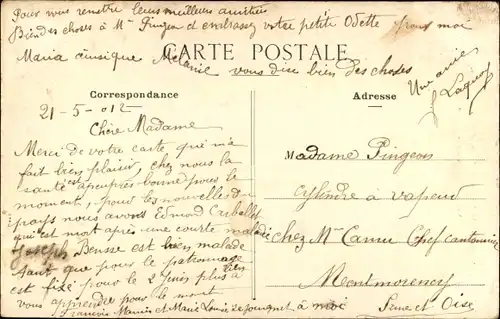 Pour vous rendre leurs meilleurs amitiés
Bien des choses à Mme Pingeon et embrassez votre petite Odette pour moi
Maria ainsique Melanie vous dise bien des choses
Une amie
CARTE POSTALE
Correspondance
Adresse
21-5-012
Chère Madame
Merci de votre carte, qui m'a
fait bien plaisir, chez nous la
santé est apeuprès bonne pour le
moment, pour les nouvelles du
pays nous avons Edmond
qui est mort après une courte maladie
Joseph Beusse est bien malade
sauf que pour le patronnage
est fixé pour le 2 juin plus rien à
vous apprendre pour le mont
François Mauris et Marie Louise se joignet à moi
Madame Pingeon
Cylindre à vapeur
chez Mr Camu Chef cantonnier
Montmorency
Seine et Oise